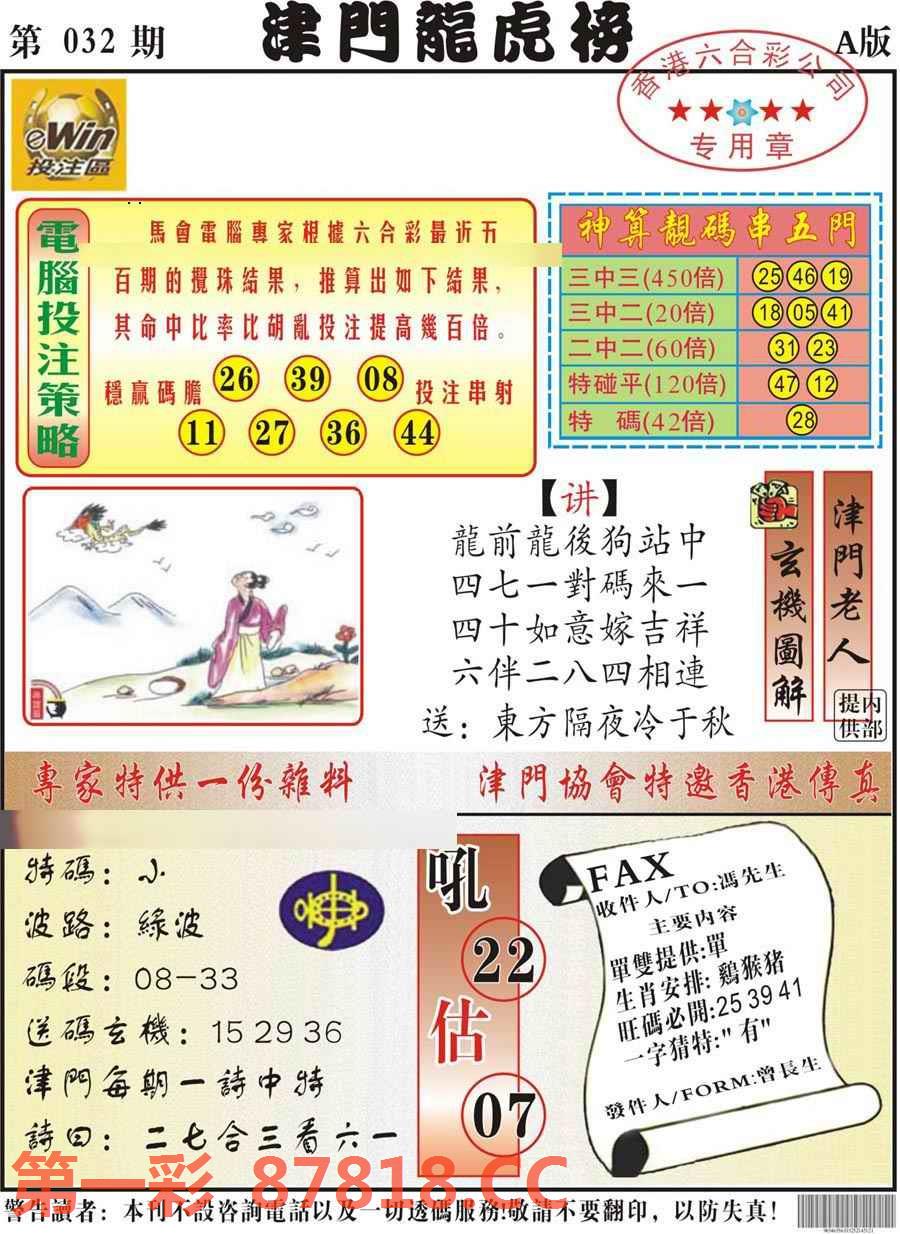 第 032 期
津門龍虎榜
A版
香港六合彩公司
专用章
eWin
投注區
電腦投注策略
馬會電腦專家根據六合彩最近五
百期的攪珠結果，推算出如下結果，
其命中比率比胡亂投注提高幾百倍。
穩贏碼膽 26 39 08 投注串射
11 27 36 44
神算靚碼串五門
三中三(450倍) 25 46 19
三中二(20倍) 18 05 41
二中二(60倍) 31 23
特碰平(120倍) 47 12
特 碼(42倍) 28
【讲】
龍前龍後狗站中
四七一對碼來一
四十如意嫁吉祥
六伴二八四相連
送：東方隔夜冷于秋
玄機圖解
津門老人
内部提供
專家特供一份雜料
津門協會特邀香港傳真
特碼：小
波路：綠波
碼段：08-33
送碼玄機：15 29 36
津門每期一詩中特
詩曰：二七合三看六一
吼
22
估
07
FAX
收件人/TO:馮先生
主要内容
單雙提供:單
生肖安排: 鷄猴猪
旺碼必開:25 39 41
一字猜特:"有"
發件人/FORM:曾長生
第一彩 87818.CC
警告讀者：本刊不設咨詢電話以及一切透碼服務!敬請不要翻印，以防失真!